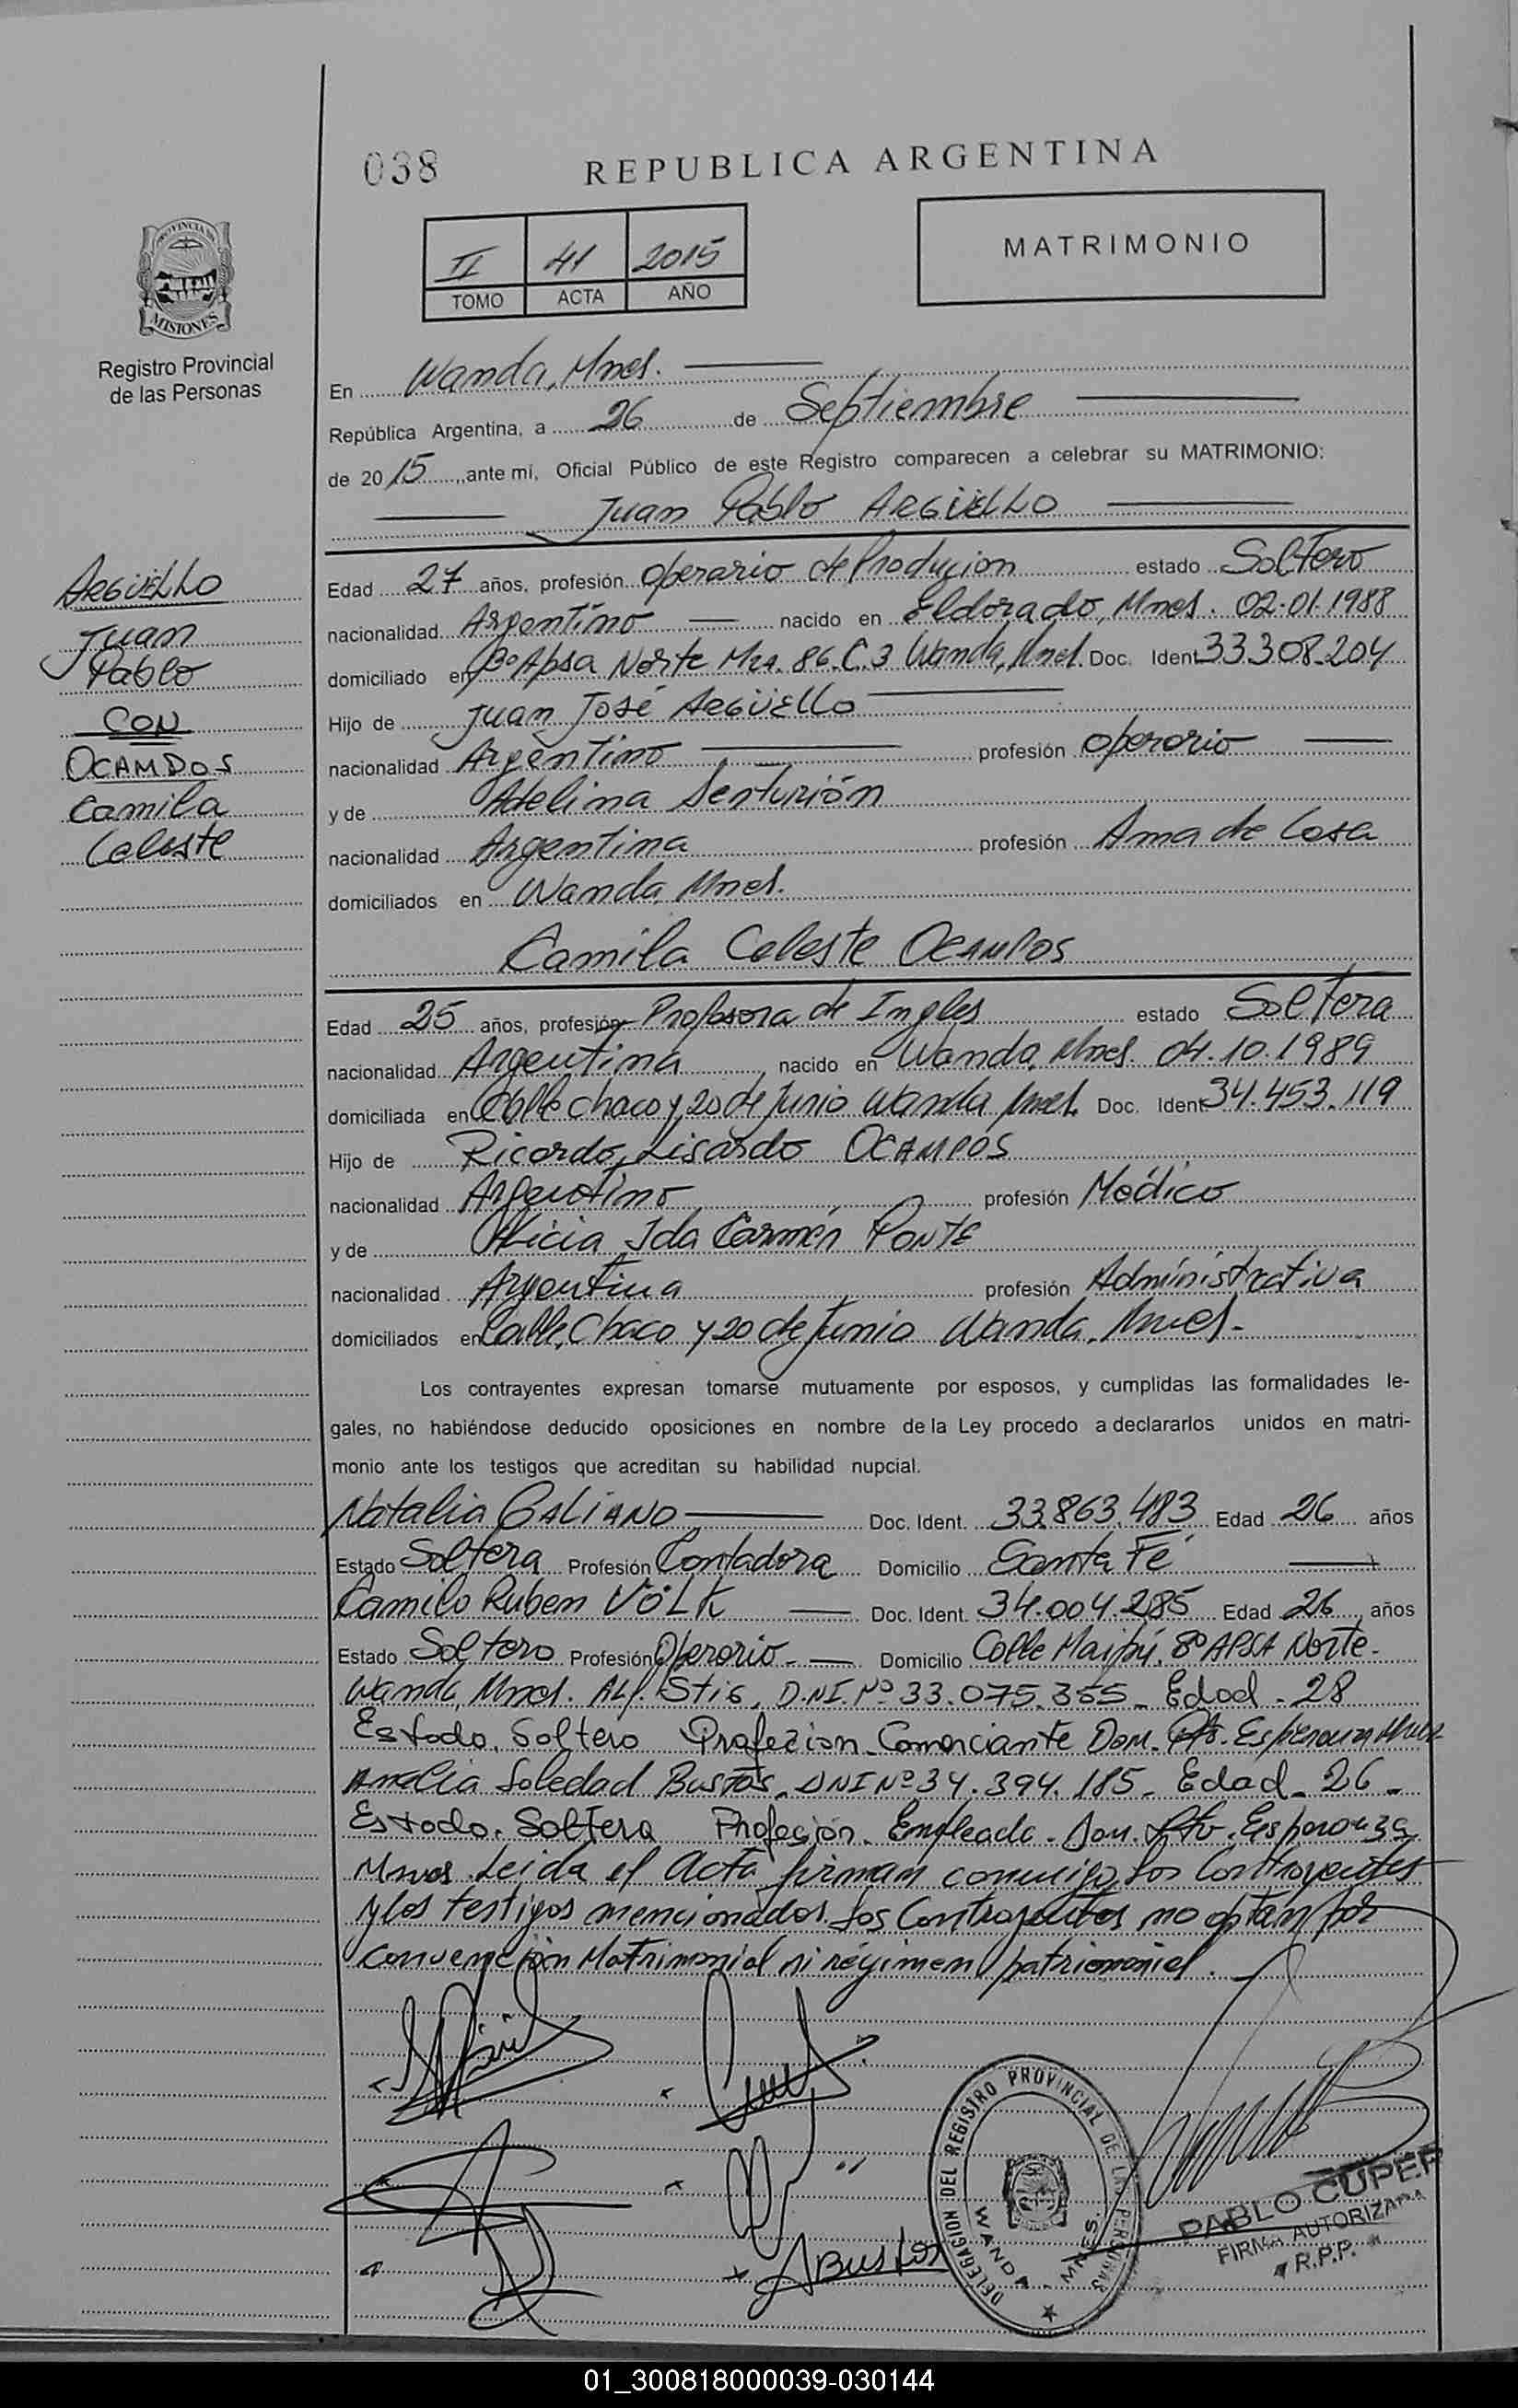 038
REPUBLICA ARGENTINA
II 41 2015
TOMO ACTA AÑO
MATRIMONIO
PROVINCIA DE
MISIONES
Registro Provincial
de las Personas
En Wanda, Mnes.
República Argentina, a 26 de Septiembre
de 2015, ante mí, Oficial Público de este Registro comparecen a celebrar su MATRIMONIO:
Juan Pablo ARGÜELLO
ARGÜELLO
Juan
Pablo
CON
OCAMPOS
Camila
Celeste
Edad 27 años, profesión Operario de Producion estado Soltero
nacionalidad Argentino nacido en Eldorado, Mnes. 02.01.1988
domiciliado en Bº Apsa Norte Mza. 86. C.3 Wanda, Mnes. Doc. Ident 33.308.204
Hijo de Juan José ARGÜELLO
nacionalidad Argentino profesión Operario
y de Adelina Senturión
nacionalidad Argentina profesión Ama de Casa
domiciliados en Wanda, Mnes.
Camila Celeste OCAMPOS
Edad 25 años, profesión Profesora de Ingles estado Soltera
nacionalidad Argentina nacido en Wanda, Mnes. 04.10.1989
domiciliada en Calle Chaco y 20 de Junio Wanda, Mnes. Doc. Ident 34.453.119
Hijo de Ricardo Lisardo OCAMPOS
nacionalidad Argentino profesión Médico
y de Alicia Ida Carmen PONTE
nacionalidad Argentina profesión Administrativa
domiciliados en Calle Chaco y 20 de Junio Wanda, Mnes.-
Los contrayentes expresan tomarse mutuamente por esposos, y cumplidas las formalidades le-
gales, no habiéndose deducido oposiciones en nombre de la Ley procedo a declararlos unidos en matri-
monio ante los testigos que acreditan su habilidad nupcial.
Natalia GALIANO Doc. Ident. 33.863.483 Edad 26 años
Estado Soltera Profesión Contadora Domicilio Santa Fé
Camilo Ruben VÖLK Doc. Ident. 34.004.285 Edad 26 años
Estado Soltero Profesión Operario Domicilio Calle Maipú, Bº APSA Norte-
Wanda, Mnes. D.N.I. Nº 33.075.355_ Edad - 28
Estado. Soltero Profecion_ Comerciante Dom. Pto. Esperanza Mnes
Amelia Soledad Bustos_ DNI Nº 34.394.185_ Edad_ 26_
Estado. Soltera Profeción_ Empleada. Dom. Pto. Esperanza
Mnes. Leida el Acta firman conmigo los Contrayentes
y los testigos mencionados. Los Contrayentes no optan por
Convención Matrimonial ni régimen patrimonial.
ABustos
DELEGACION DEL REGISTRO PROVINCIAL DE LAS PERSONAS
WANDA - MNES.
PABLO CUPER
FIRMA AUTORIZADA
R.P.P.
01_300818000039-030144